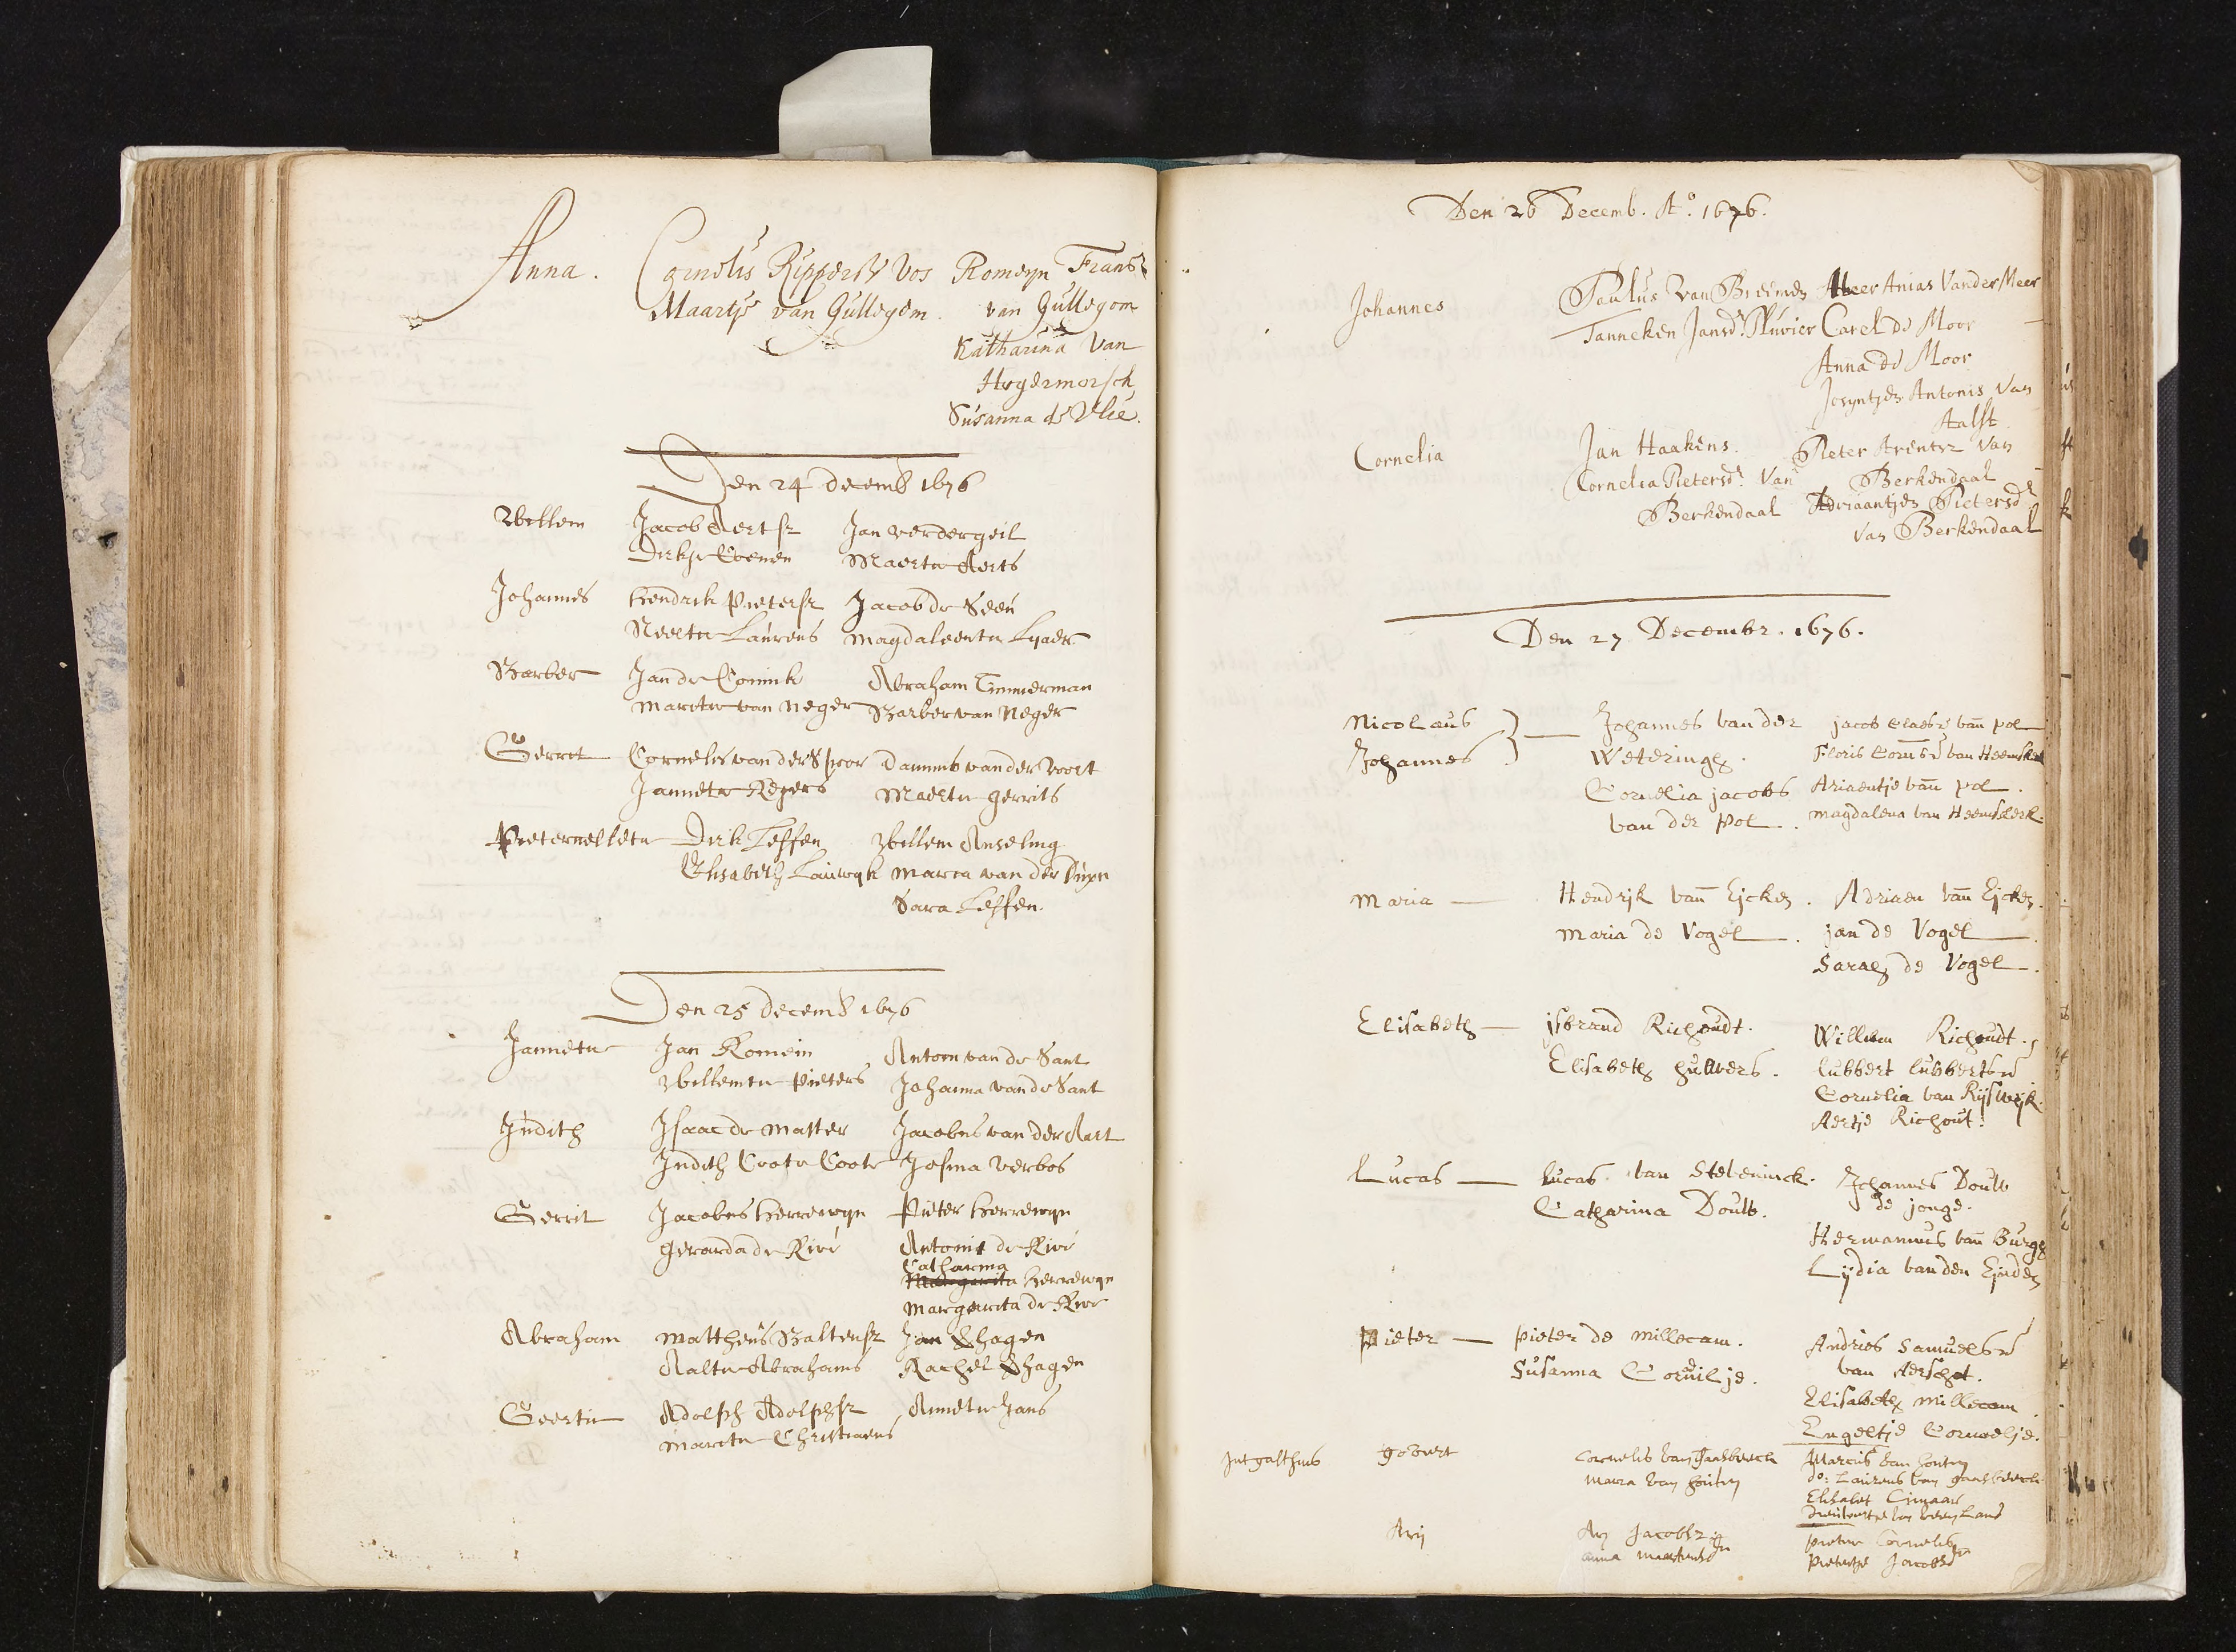 Anna. Cornelis Rippertsz Vos Romeyn Fransz
Maartje van Gullegom. van Gullegom
Katharina van
Hogermorsch
Susanna de Vlie.
Den 24 decemb 1676
Willem Jacob Aertsz Jan verdergeil
Dirkje Maertie Aerts
Johannes Hendrik Pietersz Jacob de
Neeltie Laurens Magdaleentie
Barber Jan de Conink Abraham Timmerman
Maertie van Neger Barber van Neger
Gerrit Cornelis van der Spoor Dammis van der Voort
Jannetie Regers Maertie gerrits
Pieternelletie Dirk Leffen Willem Anseling
Elisabeth Lauwyk Maria van der Duyn
Sara Leffen.
Den 25 decemb 1676
Jannetie Jan Romein Antoni van de Sant
Willemtie Pieters Johanna van de Sant
Judith Isaac de Matter Jacobus van der Aart
Judith Coote Josina Verbos
Gerrit Jacobus Herrewyn Pieter Herrewyn
Gerarda de Rivé Antonis de Rivé
Catharina
Margarita Herrewyn
Margarita de Rivé
Abraham Mattheus Baltensz Jan Ehagen
Aaltie Abrahams Rachel Ehagen
Geertie Adolph Adolphsz Annetie Jans
Maritie Christiaens
Den 26 Decemb. Ao. 1676.
Johannes Paulus van Breemen Heer Anias Vander Meer
Tanneken Jansdr. Pluvier Carel de Moor
Anna de Moor
Josyntjen Antonis Van
Aalst
Cornelia Jan Haakens. Pieter Arentsz van
Cornelia Pietersdr. Van Berkendaal
Berkendaal Adriaantjen Pietersdr
van Berkendaal
Den 27 Decembr. 1676.
Nicolaus } — Johannes van der jacob Claesz van pol
Johannes Weteringh. Floris Cornsz van Heemskerk
Cornelia jacobs Ariaentje van pol.
van der pol. magdalena van Heemskerk.
Maria — Hendrik van Eijcken. Adriaen van Eijcken.
Maria de Vogel. jan de Vogel.
Sarah de Vogel.
Elisabeth — jsbrand Richoudt. Willem Richoudt.
Elisabeth Lubbert Lubbertsz
Cornelia van Rijswijk.
Aertje Richout.
Lucas — Lucas van Steveninck. Johannes Douw
Catharina Douw. de jonge.
Hermannus van Burgh
Lijdia van den Eijnden
Pieter — Pieter de Millecam. Andries Samuelsz
Susanna Corneilje. van Aerschot.
Elisabeth Millecam
Engeltje Corneelje.
Int gasthuis Govert Cornelis van Gaasbeeck Marcus van Houten
Maria van Houten do: Laurens van gaesbeeck
Elisabet Cimaar
Arij Ary Jacobsz Pieter Cornelisz
Anna Maertensdr Pietertje Jacobsdr